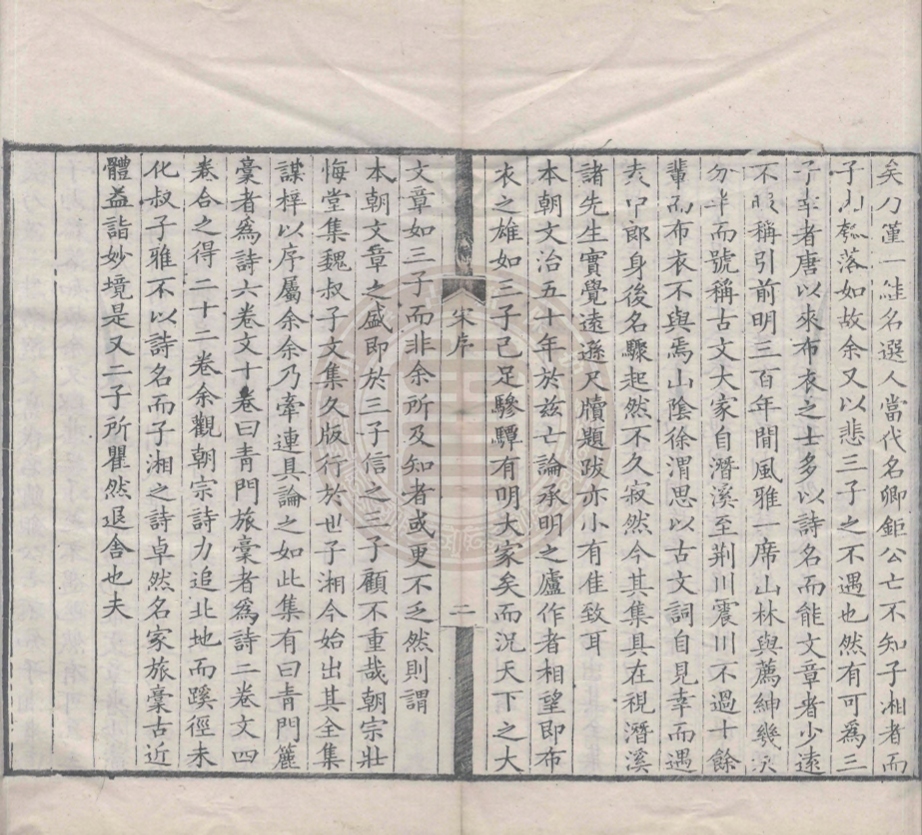 矣乃僅一誌名選人當代名卿鉅公亡不知子湘者而
子湘瓠落如故余又以悲三子之不遇也然有可爲三
子幸者唐以來布衣之士多以詩名而能文章者少遠
不暇稱引前明三百年閒風雅一席山林與薦紳幾
分半而號稱古文大家自潛溪至荆川震川不過十餘
輩而布衣不與焉山陰徐渭思以古文詞自見幸而遇
袁中郎身後名驟起然不久寂然今其集具在視潛溪
諸先生實覺遠遜尺牘題跋亦小有佳致耳
本朝文治五十年於兹亡論承明之廬作者相望即布
衣之雄如三子已足驂驔有明大家矣而況天下之大
宋序
二
文章如三子而非余所及知者或更不乏然則謂
本朝文章之盛即於三子信之三子顧不重哉朝宗壯
悔堂集魏叔子文集久版行於世子湘今始出其全集
謀梓以序屬余余乃牽連具論之如此集有曰青門簏
稾者爲詩六卷文十卷曰青門旅稾者爲詩二卷文四
卷合之得二十二卷余觀朝宗詩力追北地而蹊徑未
化叔子雅不以詩名而子湘之詩卓然名家旅稾古近
體益詣妙境是又二子所瞿然退舍也夫